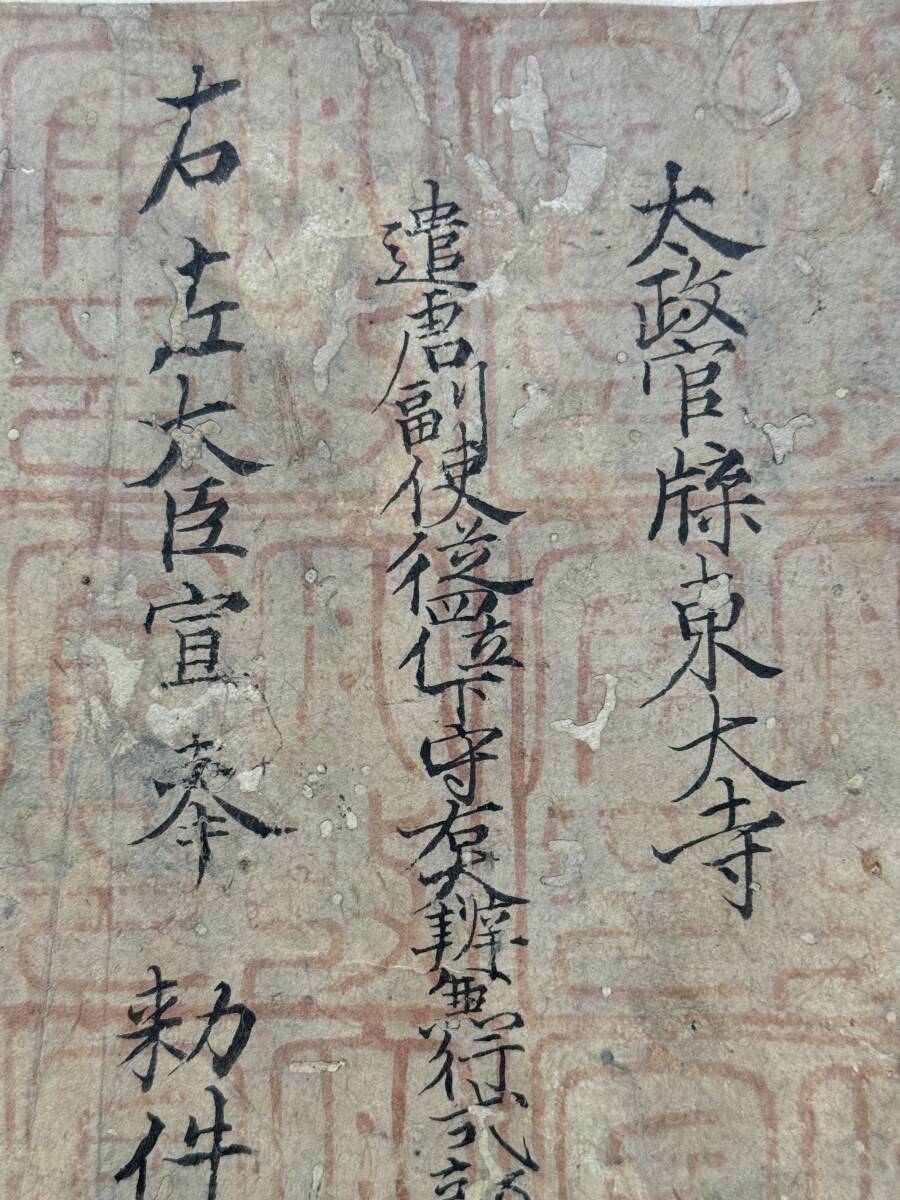 太政官牒東大寺
遣唐副使従四位下守右大辨兼行式部
右左大臣宣奉 勑件